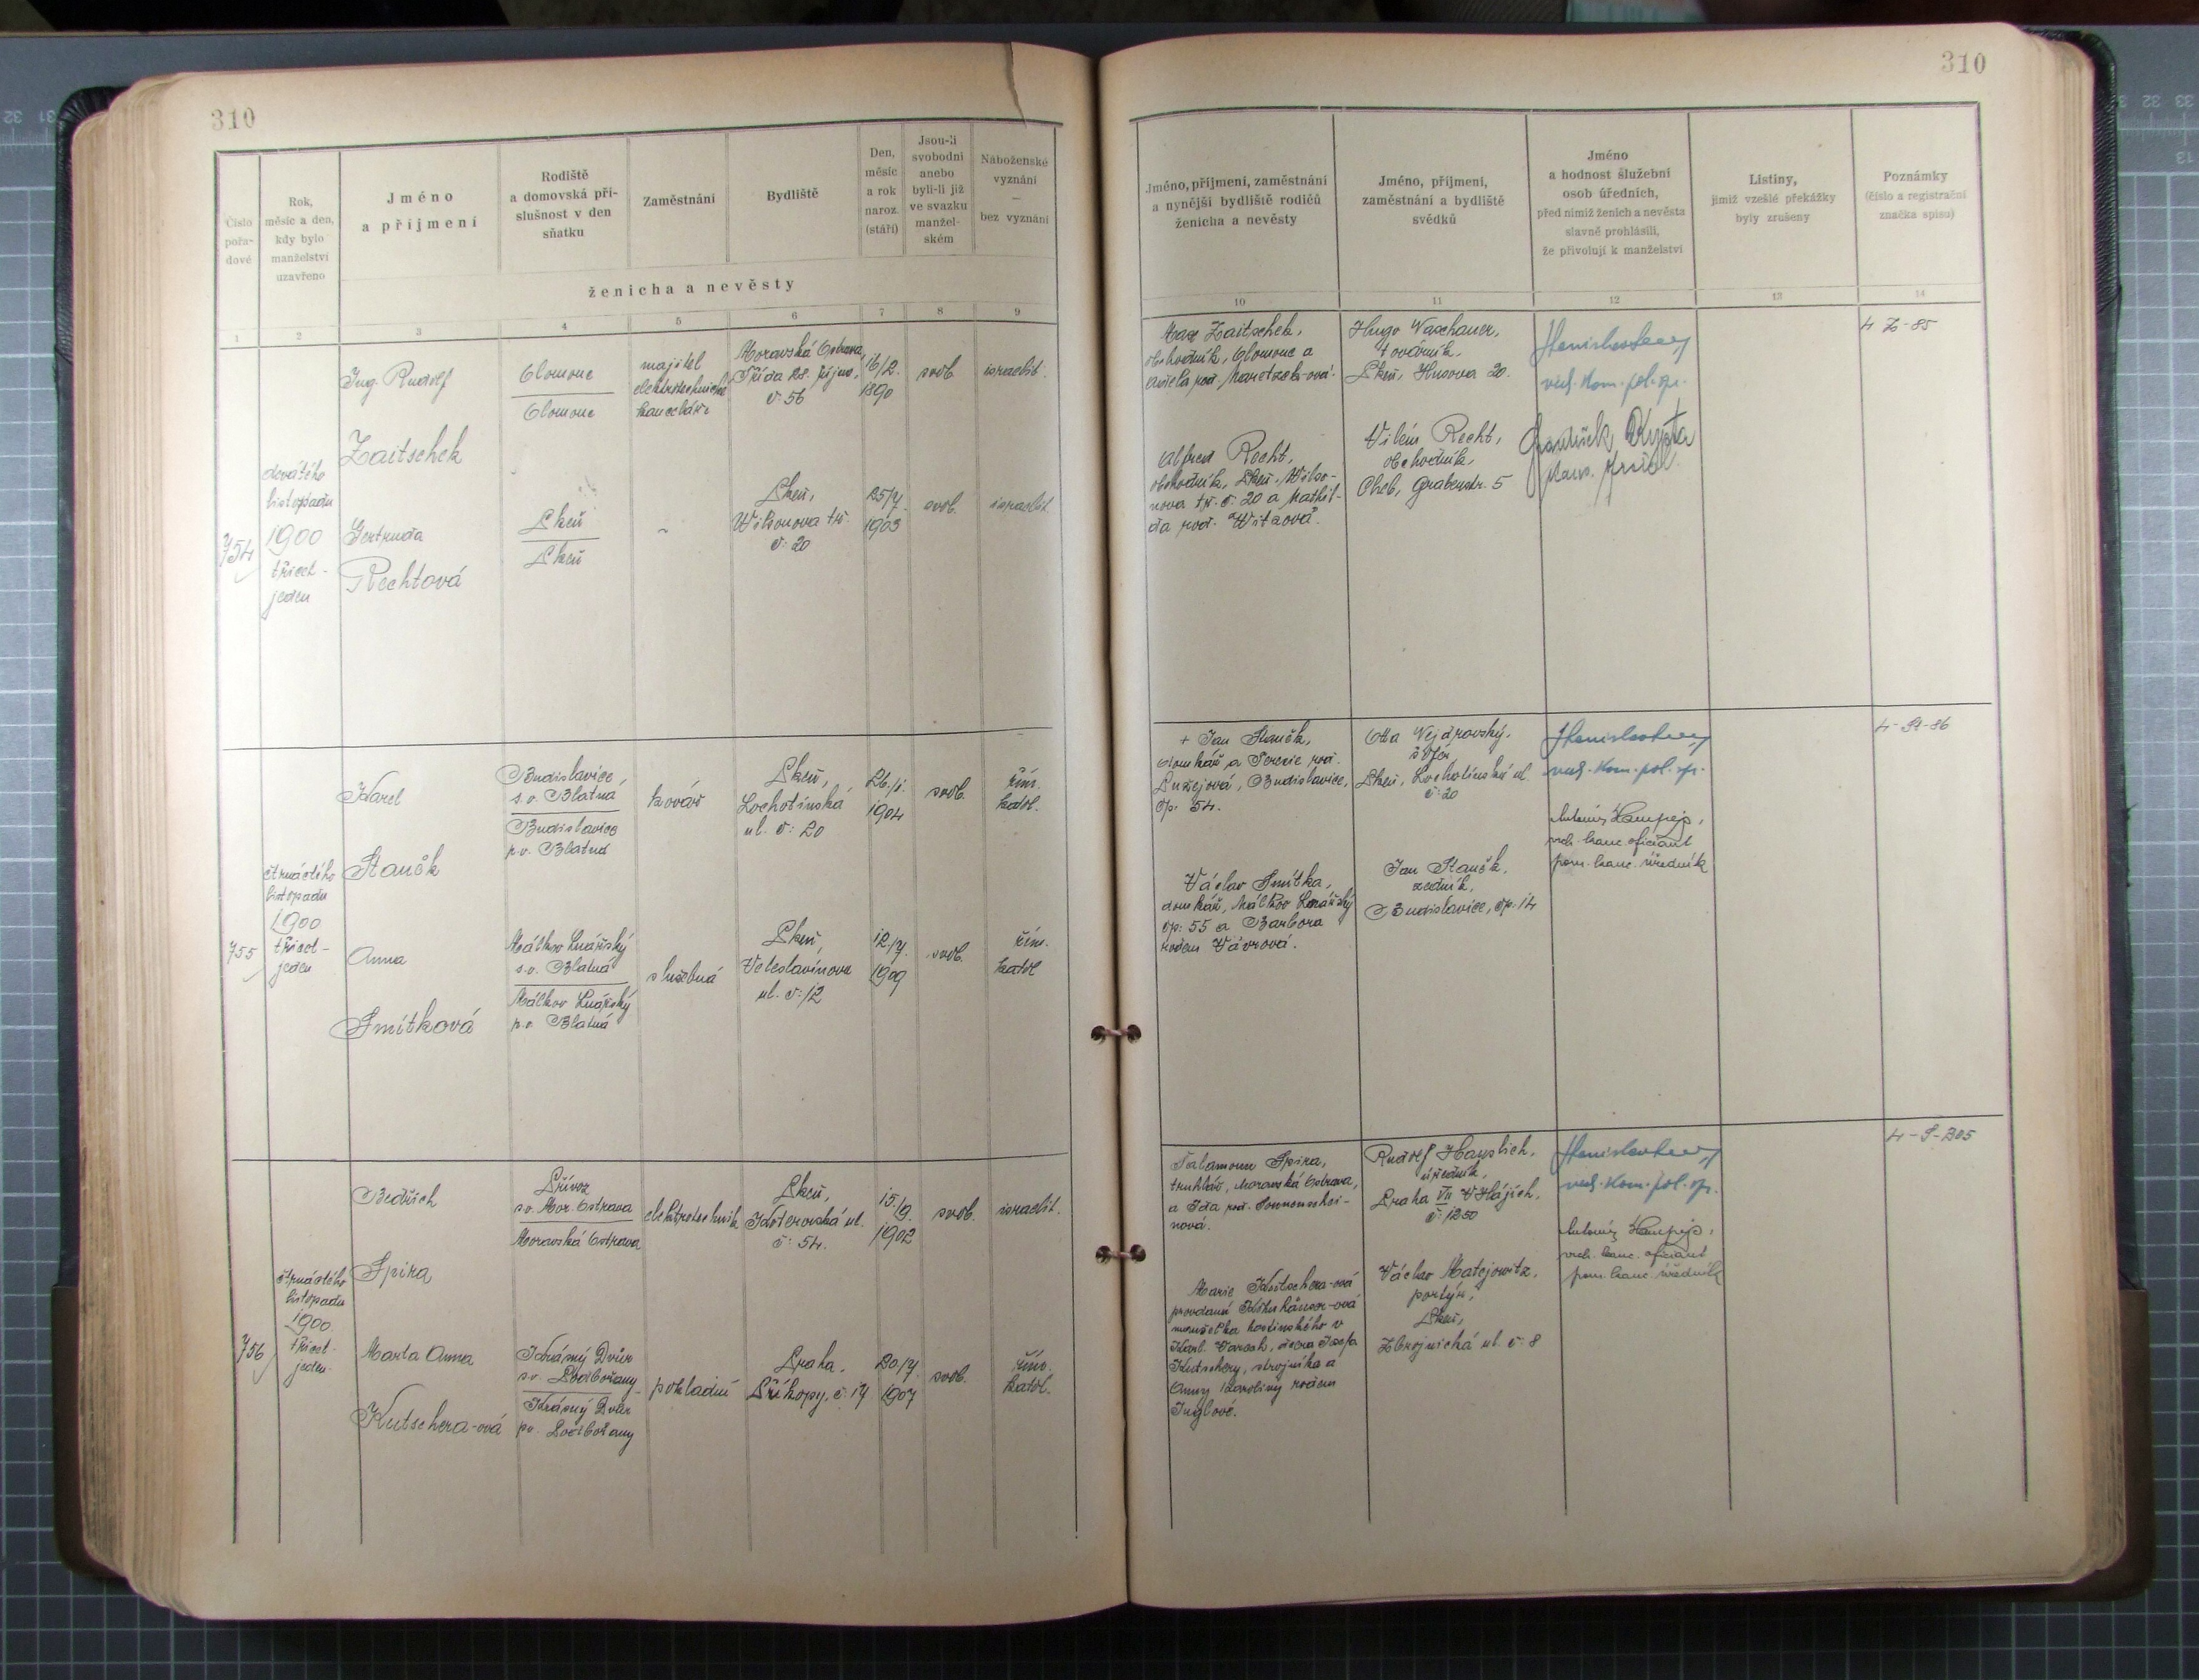 310
310
Číslo pořa- dové
Rok, měsíc a den, kdy bylo manželství uzavřeno
Jméno a příjmení
Rodiště a domovská pří- slušnost v den sňatku
Zaměstnání
Bydliště
Den, měsíc a rok naroz. (stáří)
Jsou-li svobodni anebo byli-li již ve svazku manžel- ském
Náboženské vyznání — bez vyznání
ženicha a nevěsty
Jméno, příjmení, zaměstnání a nynější bydliště rodičů ženicha a nevěsty
Jméno, příjmení, zaměstnání a bydliště svědků
Jméno a hodnost služební osob úředních, před nimiž ženich a nevěsta slavně prohlásili, že přivolují k manželství
Listiny, jimiž vzešlé překážky byly zrušeny
Poznámky (číslo a registrační značka spisu)
1 2 3 4 5 6 7 8 9
10 11 12 13 14
754
devátého
listopadu
1900
třicet-
jeden
Ing. Rudolf
Zaitschek
Olomouc
Olomouc
majitel
elektrotechnické
kanceláře
Moravská Ostrava,
Třída 28. října,
č: 56
16/2.
1890
svob.
israelit.
Gertruda
Rechtová
Plzeň
Plzeň
-
Plzeň,
Wilsonova tř.
č: 20
25/7.
1903
svob.
israelit.
Max Zaitschek,
obchodník, Olomouc a
roz. Maretzek-ová.
Alfred Recht,
obchodník, Plzeň, Wilso-
nova tř. č: 20 a Mathil-
da roz. Witzová.
Hugo Waschauer,
továrník,
Plzeň, Husova 20.
Vilém Recht,
obchodník,
Cheb, Grabenstr. 5
vrch. kom. pol. sp.
4-Z-85
755
čtrnáctého
listopadu
1900
třicet-
jeden
Karel
Staněk
Budislavice,
s.o. Blatná
Budislavice
p.o. Blatná
kovář
Plzeň,
Lochotínská
ul. č: 20
26./1.
1904
svob.
řím.
katol.
Anna
Smitková
Málkov Lnářský
s.o. Blatná
Málkov Lnářský
p.o. Blatná
služebná
Plzeň,
Veleslavínova
ul. č: 12
12./7.
1909
svob.
řím.
katol
+ Jan Staněk,
domkář a Terezie roz.
Budislavice,
čp. 54.
Václav Smitka,
domkář, Málkov Lnářský
čp: 55 a Barbora
rozen Vávrová.
Otta Vejdrovský,
šofér,
Plzeň, Lochotínská ul.
č: 20
Jan Staněk,
zedník,
Budislavice, čp. 14
vrch. kom. pol. sp.
Antonín Hampejs,
vrch. kanc. oficiant
pom. kanc. úředník
4-St-86
756
čtrnáctého
listopadu
1900
třicet-
jeden-
Bedřich
Spira
Přívoz
s.o. Mor. Ostrava
Moravská Ostrava
elektrotechnik
Plzeň,
Koterovská ul.
č: 54.
15./9.
1902
svob.
israelit.
Marta Anna
Kutschera-ová
Krásný Dvůr
s.o. Podbořany
Krásný Dvůr
p.o. Podbořany
pokladní
Praha,
Příkopy, č: 17
20/7.
1907
svob.
řím.
katol.
Salamoun Spira,
truhlář, Moravská Ostrava,
a Ida roz. Sonnenschei-
nová.
Marie Kutschera-ová
provdaná
manželka hostinského v
Karl. Varech, dcera Josefa
Kutschery, strojníka a
Anny Karoliny rozen
Inglové.
úředník,
Praha VII V Hájích,
č: 1250
Václav Matejowitz,
portýr,
Plzeň,
Zbrojnická ul. č: 8
vrch. kom. pol. sp.
Antonín Hampejs,
vrch. kanc. oficiant
pom. kanc. úředník
4-S-205